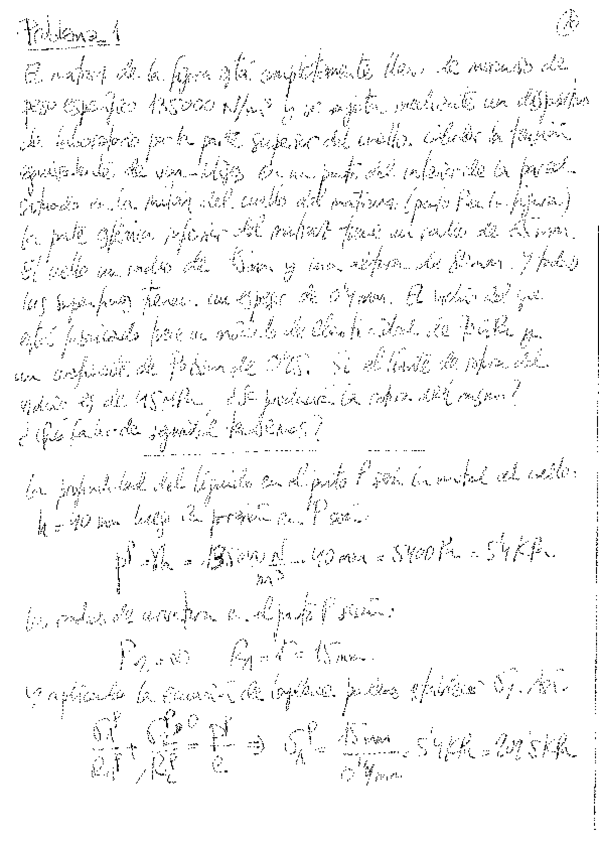 Problema 1
El matraz de la figura está completamente lleno de mercurio de
peso específico 135000 N/m³ y se sujeta mediante un dispositivo
de laboratorio por la parte superior del cuello. Calcular la tensión
equivalente de von Mises en un punto del interior de la pared
situado en la mitad del cuello del matraz (punto P en la figura)
La parte esférica inferior del matraz tiene un radio de mm.
El cuello un radio de 15mm y una altura de 80mm. Y todas
las superficies tienen un espesor de 0'4mm. El vidrio del que
está fabricado tiene un módulo de elasticidad de y
un coeficiente de Poisson de 0'25. Si el límite de rotura del
vidrio es de MPa ¿Se producirá la rotura del mismo?
¿Qué factor de seguridad tendremos?
La profundidad del líquido en el punto P será la mitad del cuello:
h = 40 mm luego la presión en P será:
pP = γh = 135000 N/m³ · 40 mm = 5400 Pa = 5'4 KPa
Los radios de curvatura en el punto P serán:
= ∞ = r = 15mm.
y aplicando la ecuación de Laplace puedo establecer Así:
σ₁P/R₁P + σ₂P/R₂P = pP/e ⇒ σ₁P = 15mm/0'4mm · 5'4KPa = 202'5KPa